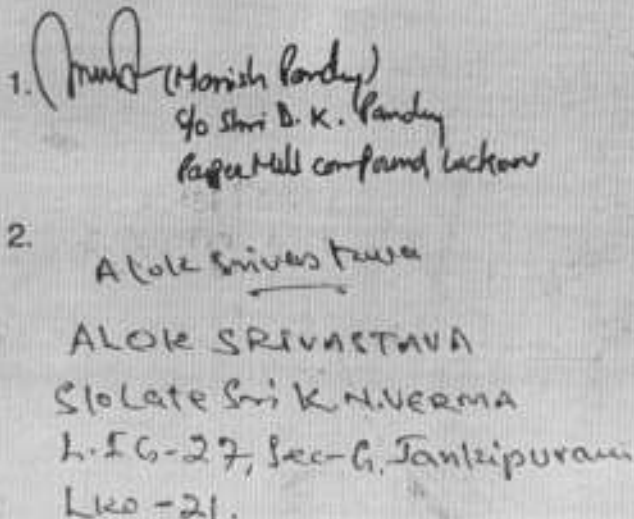 1. (Manish Pandey)
S/o Shri D. K. Pandey
Paper Mill compound Lucknow
2.
Alok Srivastava
ALOK SRIVASTAVA
S/o Late Sri K.N. VERMA
L.I G-27, Sec-G, Jankipuram
LKO-21.